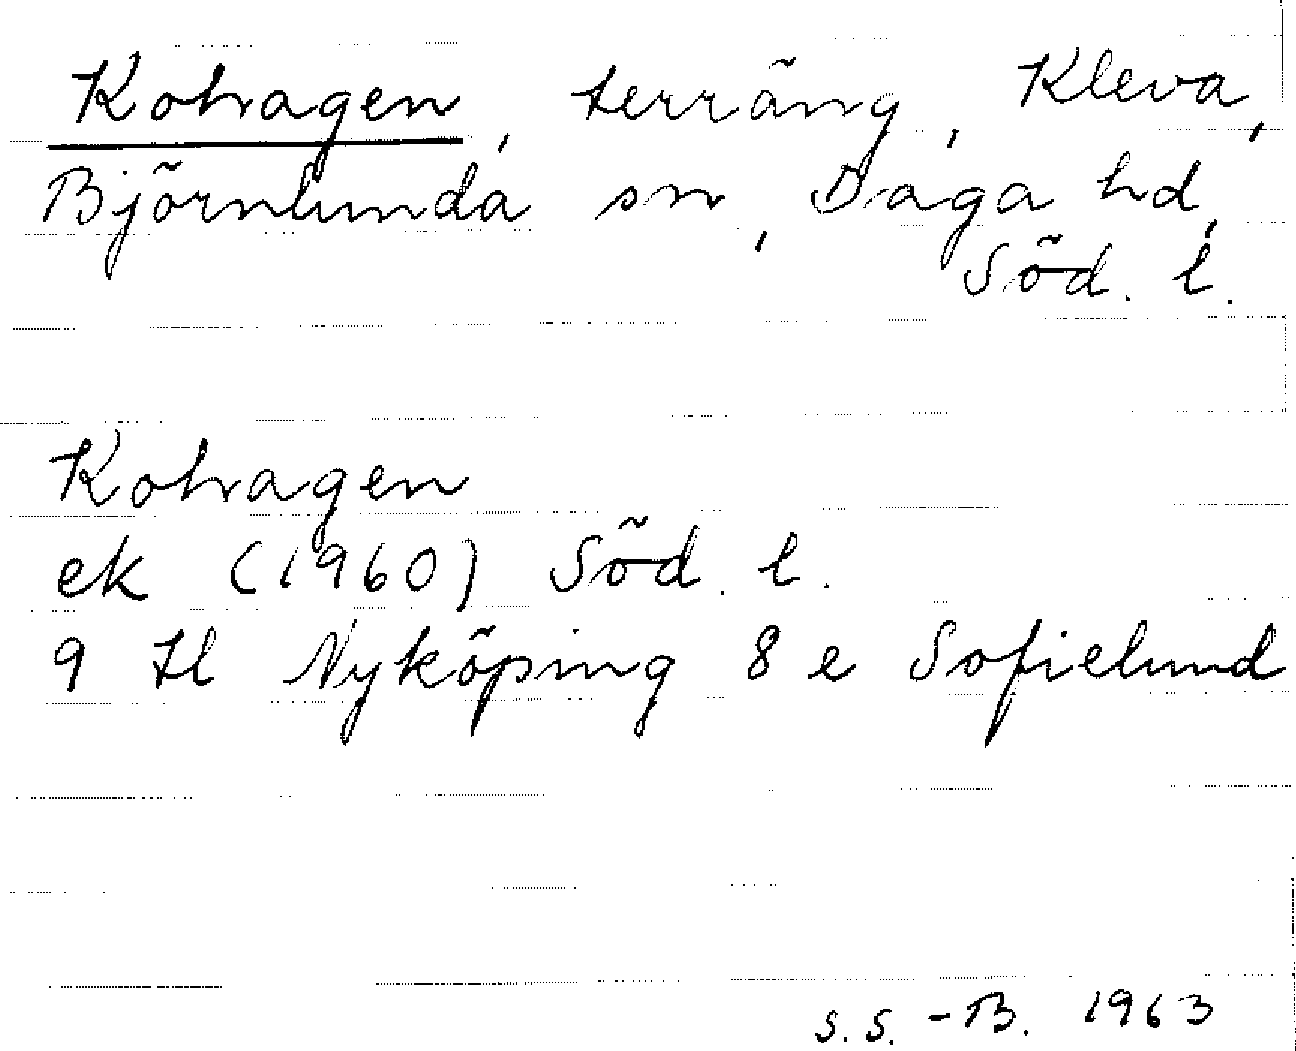 Kohagen, terräng, Kleva,
Björnlunda sn, Daga hd,
Söd. l.
Kohagen
ek (1960) Söd. l.
9 H Nyköping 8 e Sofielund
S.S.-B. 1963